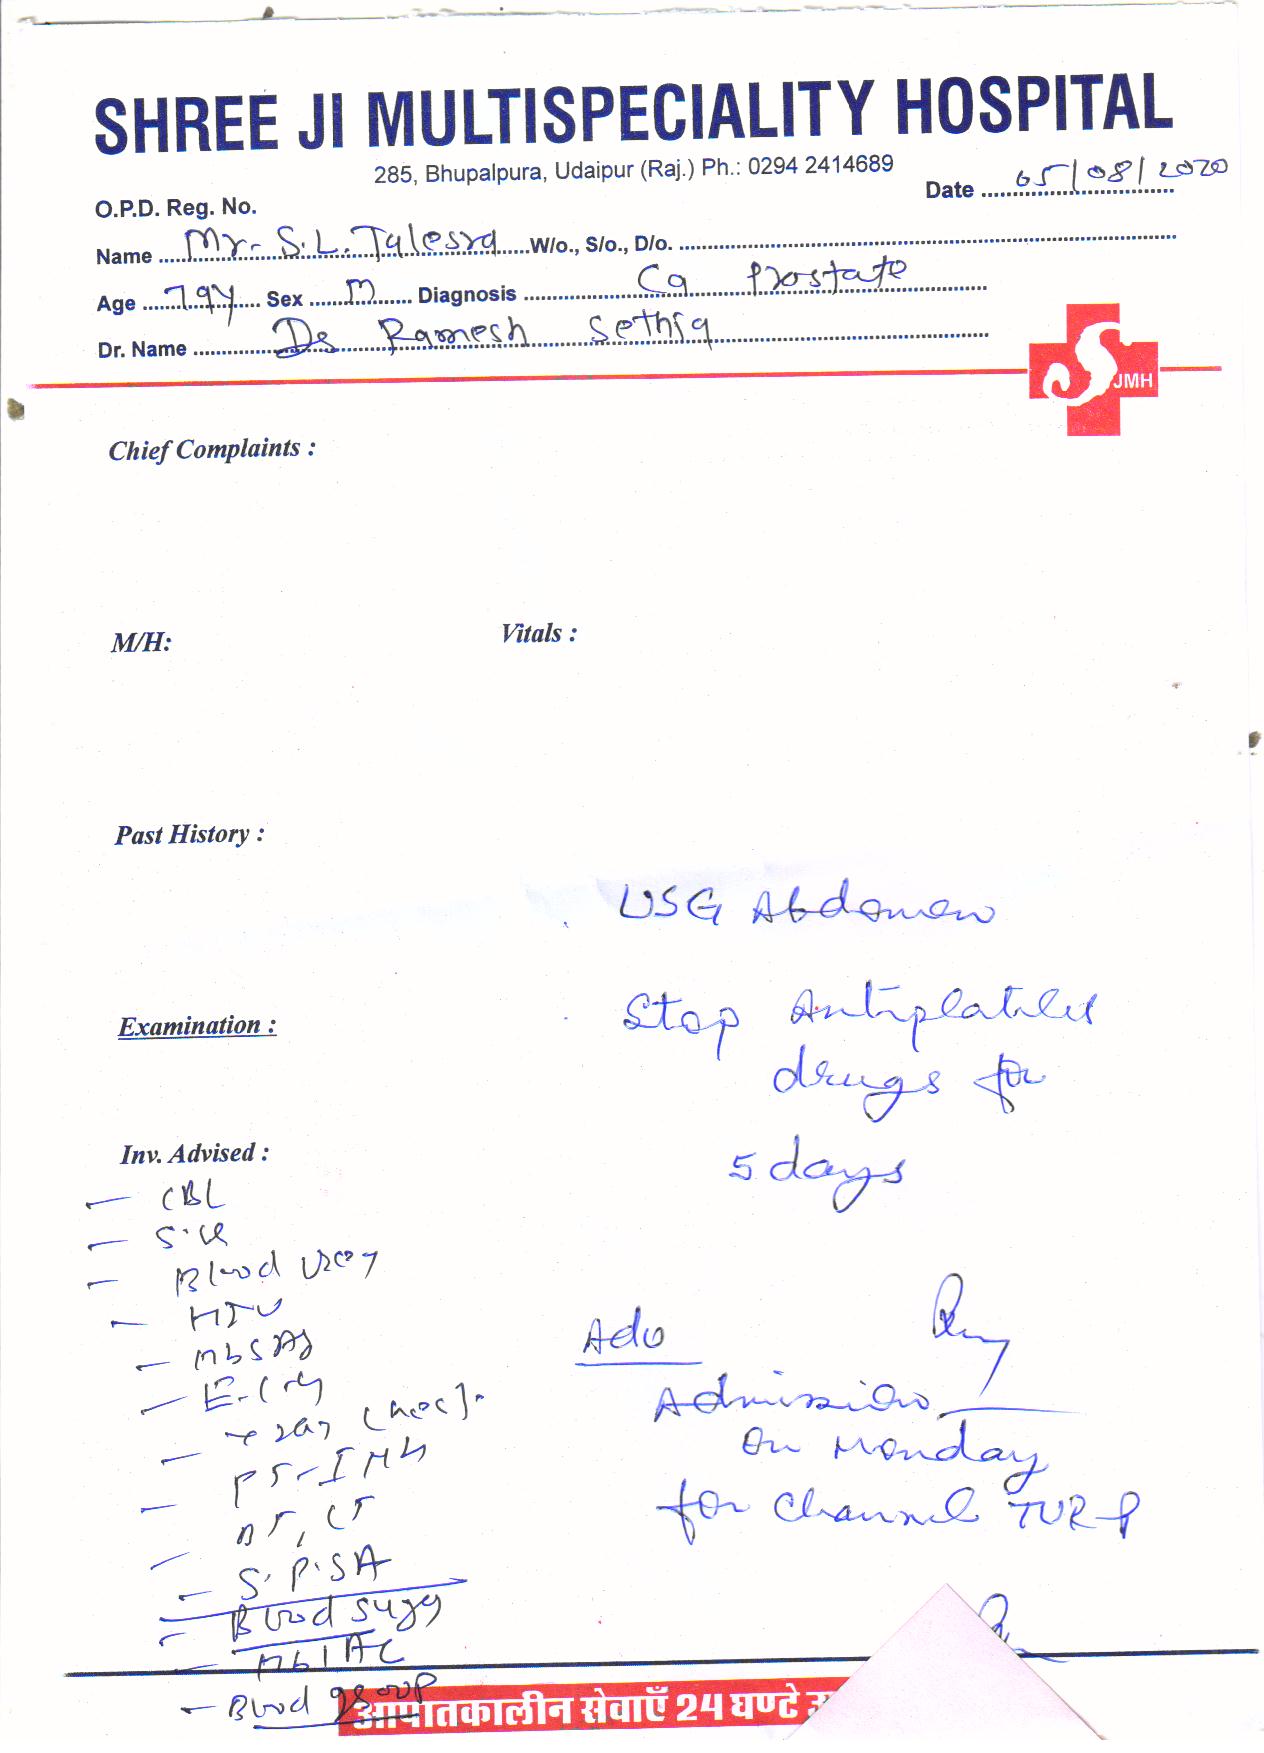 SHREE JI MULTISPECIALITY HOSPITAL
285, Bhupalpura, Udaipur (Raj.) Ph.: 0294 2414689
Date 05/08/2020
O.P.D. Reg. No.
Name Mr. S.L. Talesra W/o., S/o., D/o.
Age 79y Sex M Diagnosis Ca Prostate
Dr. Name Dr Ramesh Sethia
SJMH
Chief Complaints :
M/H:
Vitals :
Past History :
USG Abdomen
Examination :
Stop Antiplatelet
drugs for
5 days
Inv. Advised :
- CBC
- S. Cr
- Blood Urea
- HIV
- HbSAg
- E.C.G
- X-ray (
- PT-INR
- BT, CT
- S. PSA
- Blood Sugar
- Hb1AC
- Blood group
Adv
Admission
on Monday
for Channel TURP
आपातकालीन सेवाएँ 24 घण्टे